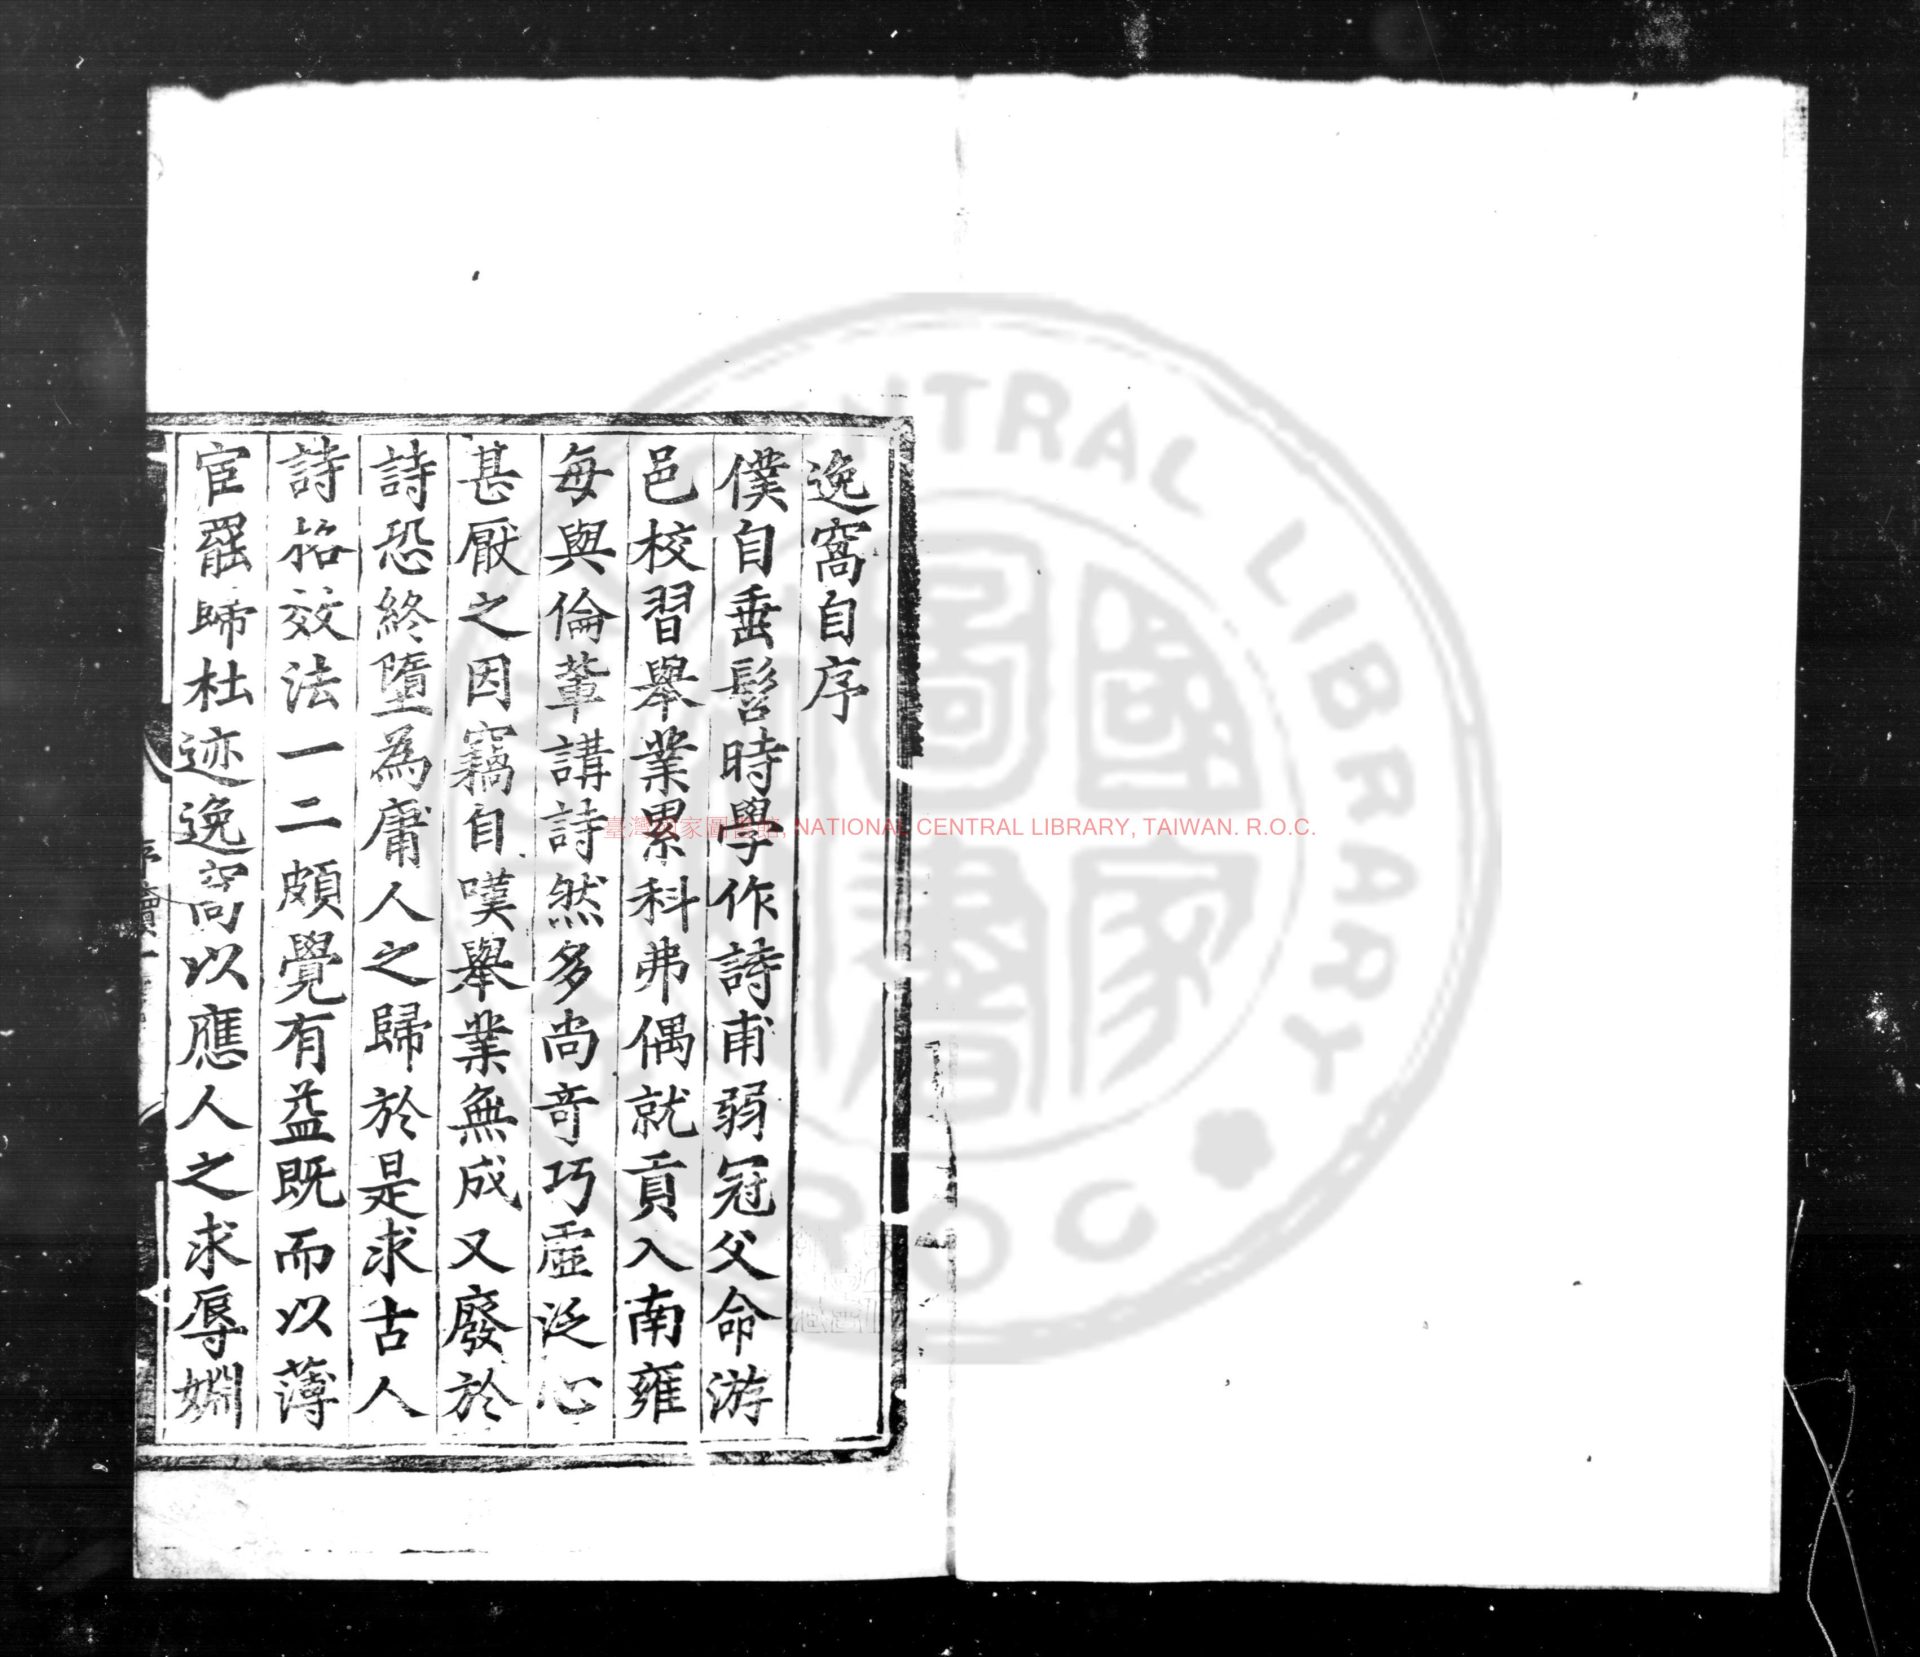 逸窩自序
僕自垂髫時學作詩甫弱冠父命游
邑校習舉業累科弗偶就貢入南雍
每與倫輩講詩然多尚竒巧虛泛心
甚厭之因竊自嘆舉業無成又廢於
詩恐終墮為庸人之歸於是求古人
詩格效法一二頗覺有益既而以薄
宦罷歸杜迹逸窩以應人之求辱婣
臺灣國家圖書館, NATIONAL CENTRAL LIBRARY, TAIWAN. R.O.C.